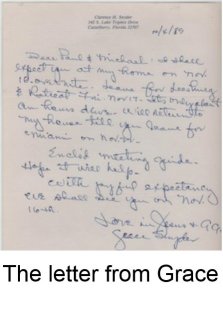 Clarence H. Snyder
142 S. Lake Triplet Drive
Casselberry, Florida 32707
10/4/89
Dear Paul & Michael: I shall
expect you at my home on Nov
16 over nite. Leave for
& Retreat Fri Nov 17. Its only about
an hours drive. Will return to
my house till you leave for
Miami on Nov
Encl'd meeting guide.
Hope it will help.
With joyful expectancy
we shall see you on Nov.
16th.
Love in Jesus & A.A.
Grace Snyder
The letter from Grace